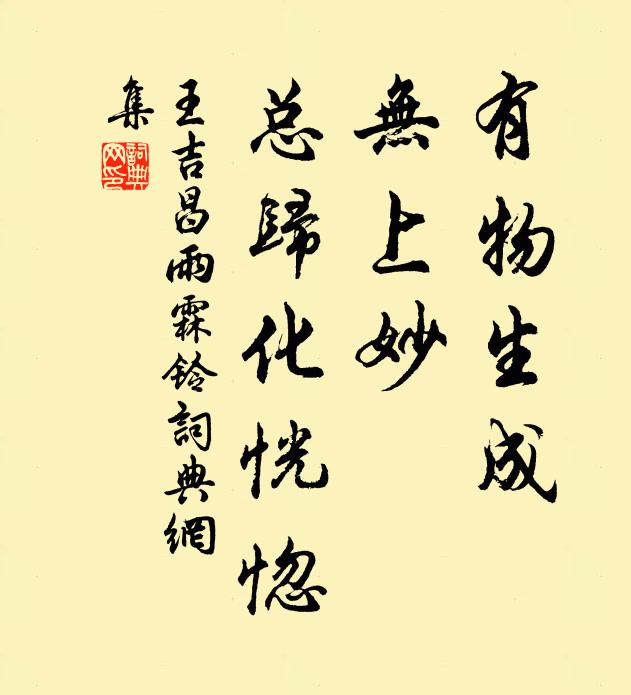 有物生成
無上妙
总歸化恍惚
王吉昌雨霖铃詞典網
集
詞典網印